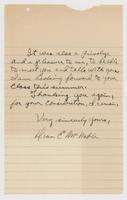 It was also a privilege
and a pleasure to me, to be able
to meet you and talk with you.
I am looking forward to your
class this summer.
Thanking you again,
for your consideration, I remain,
Very sincerely yours,